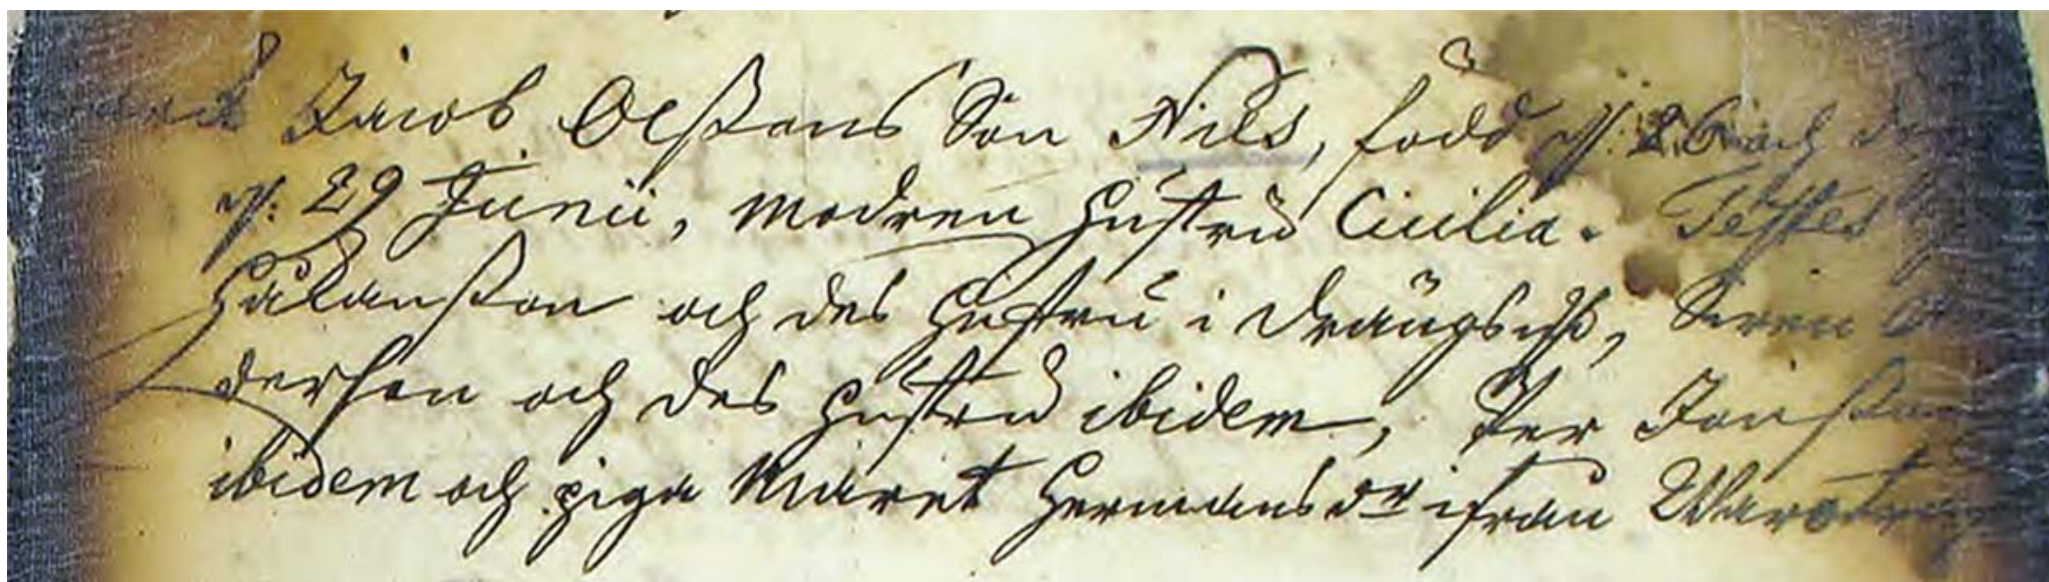 Jacob Olßons Son Nils, född d. 26 och
d. 29 Junii, modren hustru Cicilia. Testes
Håkanßon och des hustru i Drängsered, Sven
dersson och des hustru ibidem, Per Jönßon
ibidem och piga Maret Hermansdr ifrån